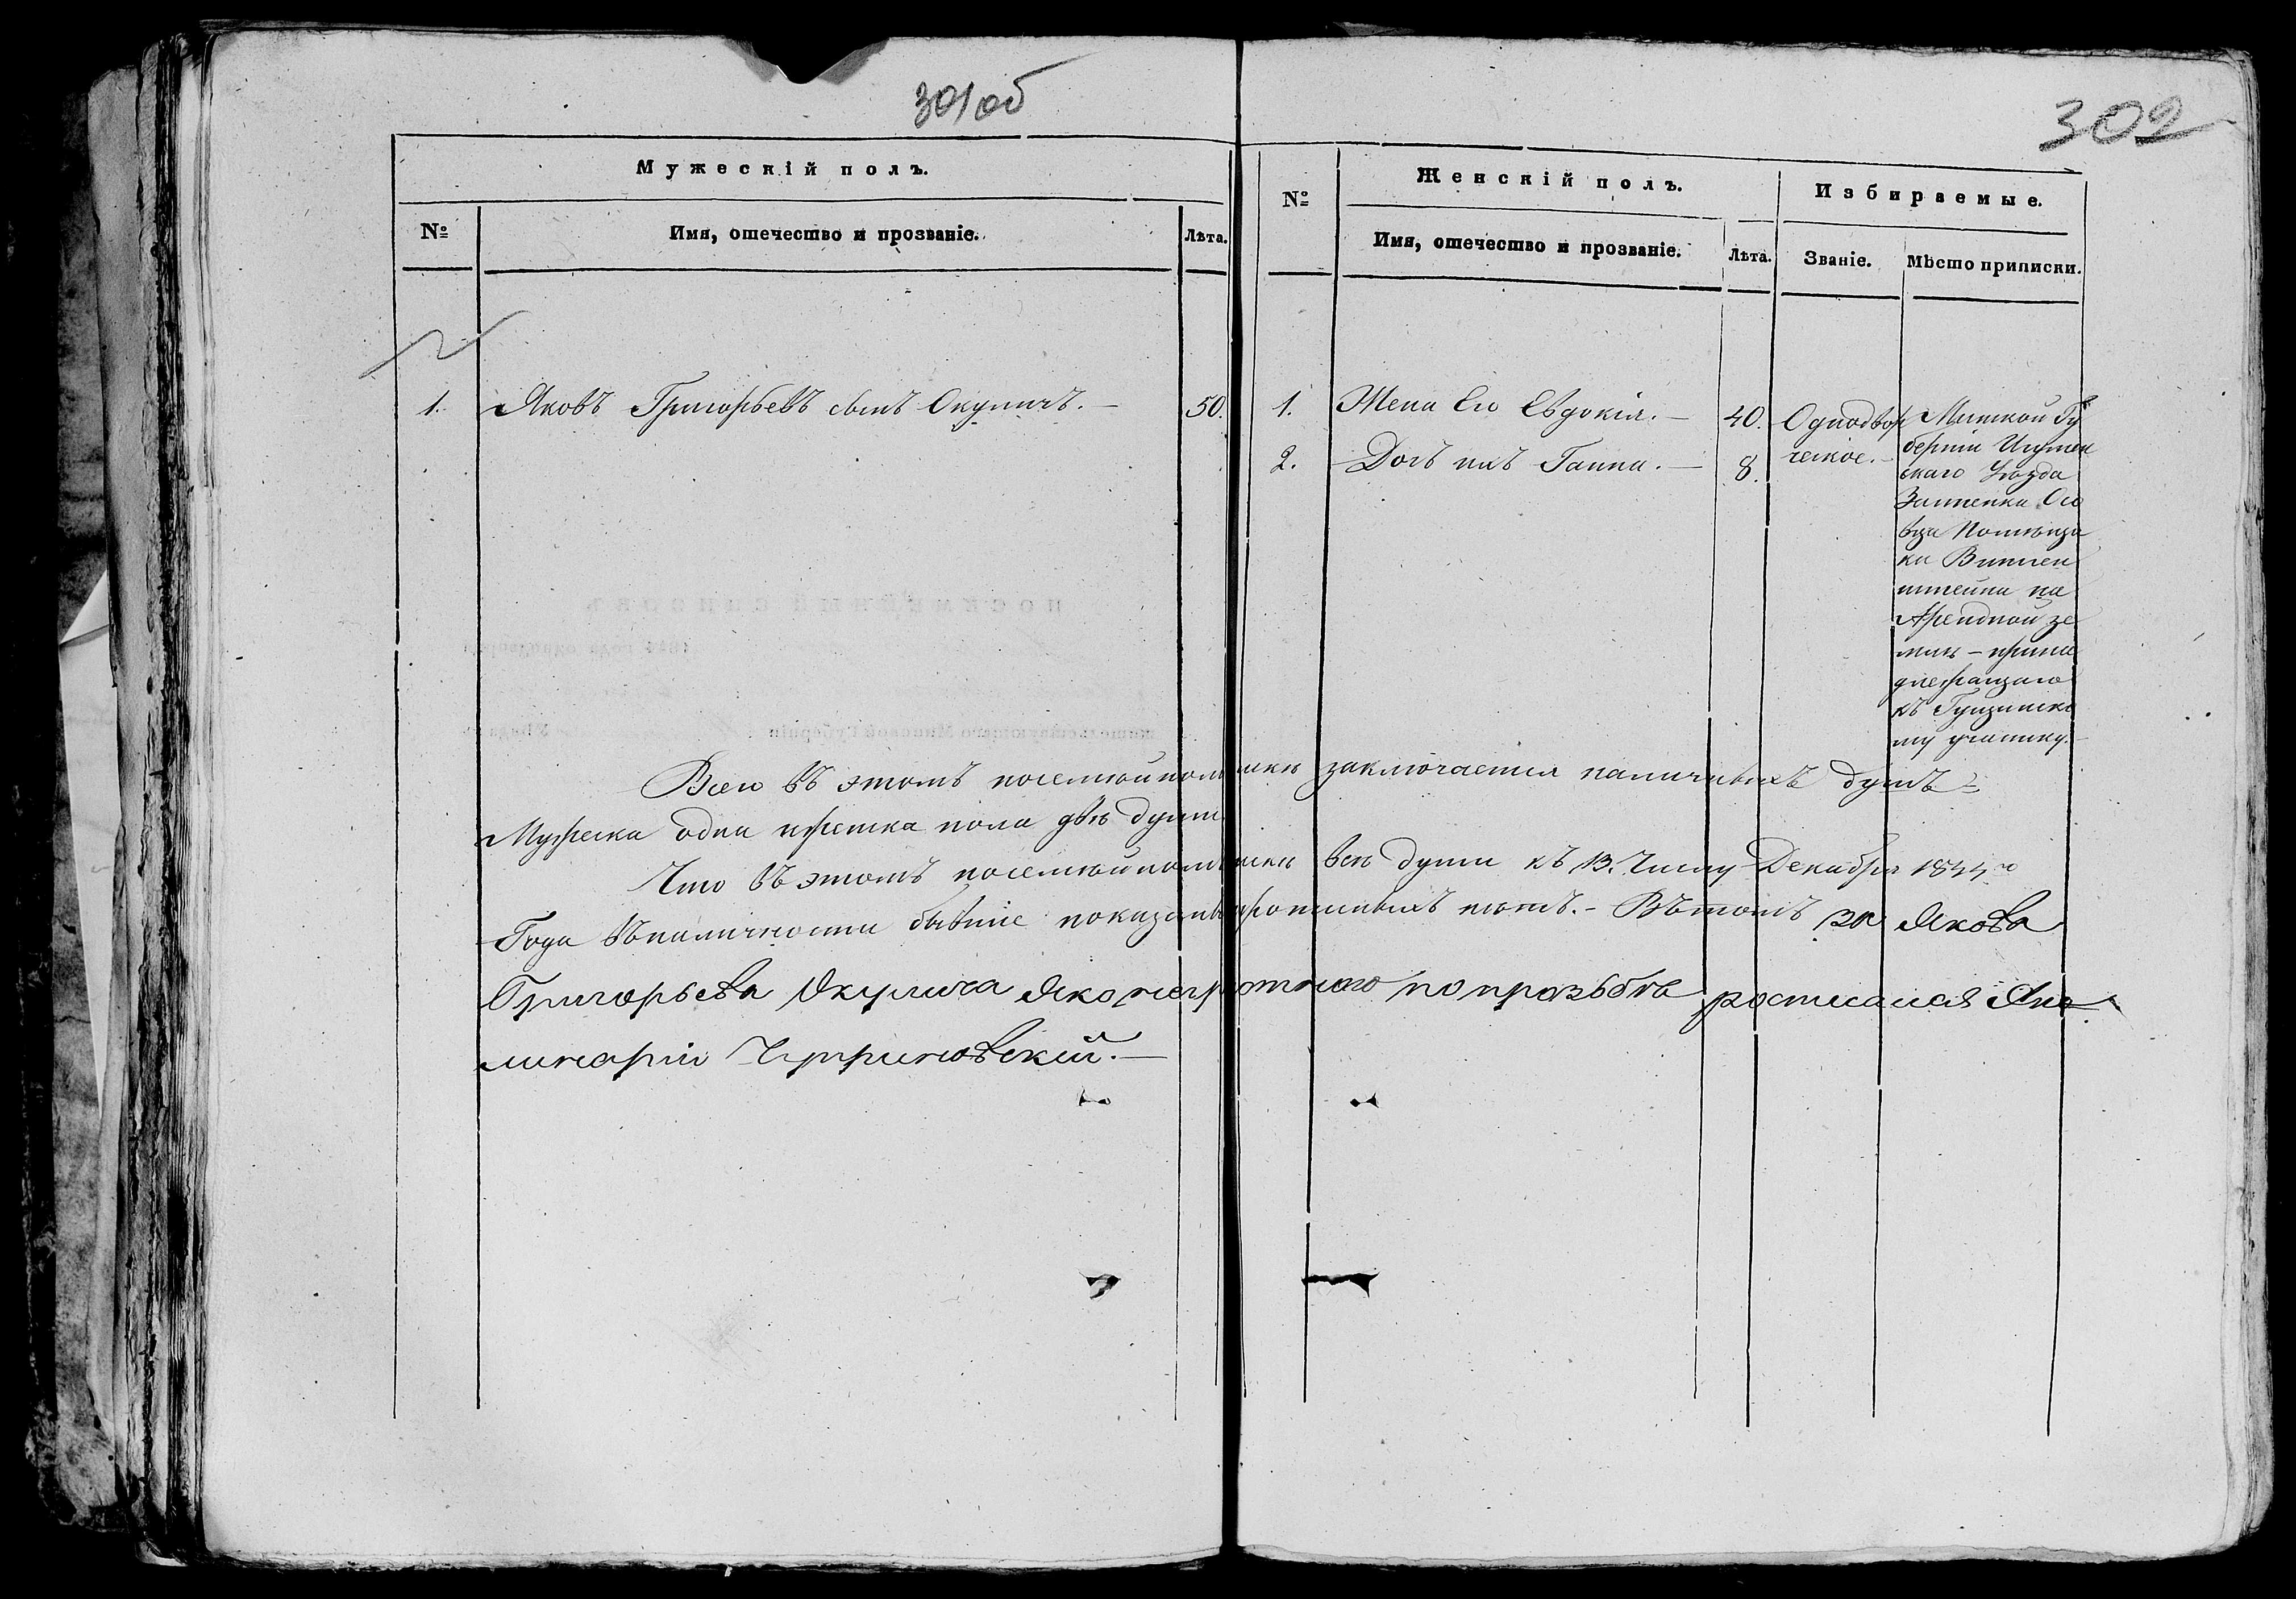 301об
302
Мужескій полъ.
№
Имя, отечество и прозваніе.
Лѣта.
№
Женскій полъ.
Имя, отечество и прозваніе.
Лѣта.
Избираемые.
Званіе.
Мѣсто приписки.
1. Яковъ Григорьевъ сынъ Окуличъ.— 50.
1. Жена Его Евдокія.— 40.
2. Дочь ихъ Ганна.— 8.
Однодвор
ческое.—
Минской Гу
берніи Игумен
скаго Уѣзда
Застенка Осо
вца Помѣщи
ка Витген
штейна на
Арендной зе
млѣ – прина
длежащаго
къ
му участку.—
Всего въ этомъ посемейномъ спискѣ заключается наличныхъ душъ
Мужеска одна женска пола двѣ души.
Что въ этомъ посемейномъ спискѣ всѣ души къ 13. Числу Декабря
Года въ наличности бывшіе показаны пропускныхъ нѣтъ.– Въ томъ за Якова
Григорьева Окулича яко неграмотного по прозьбѣ росписался Апо
линарій